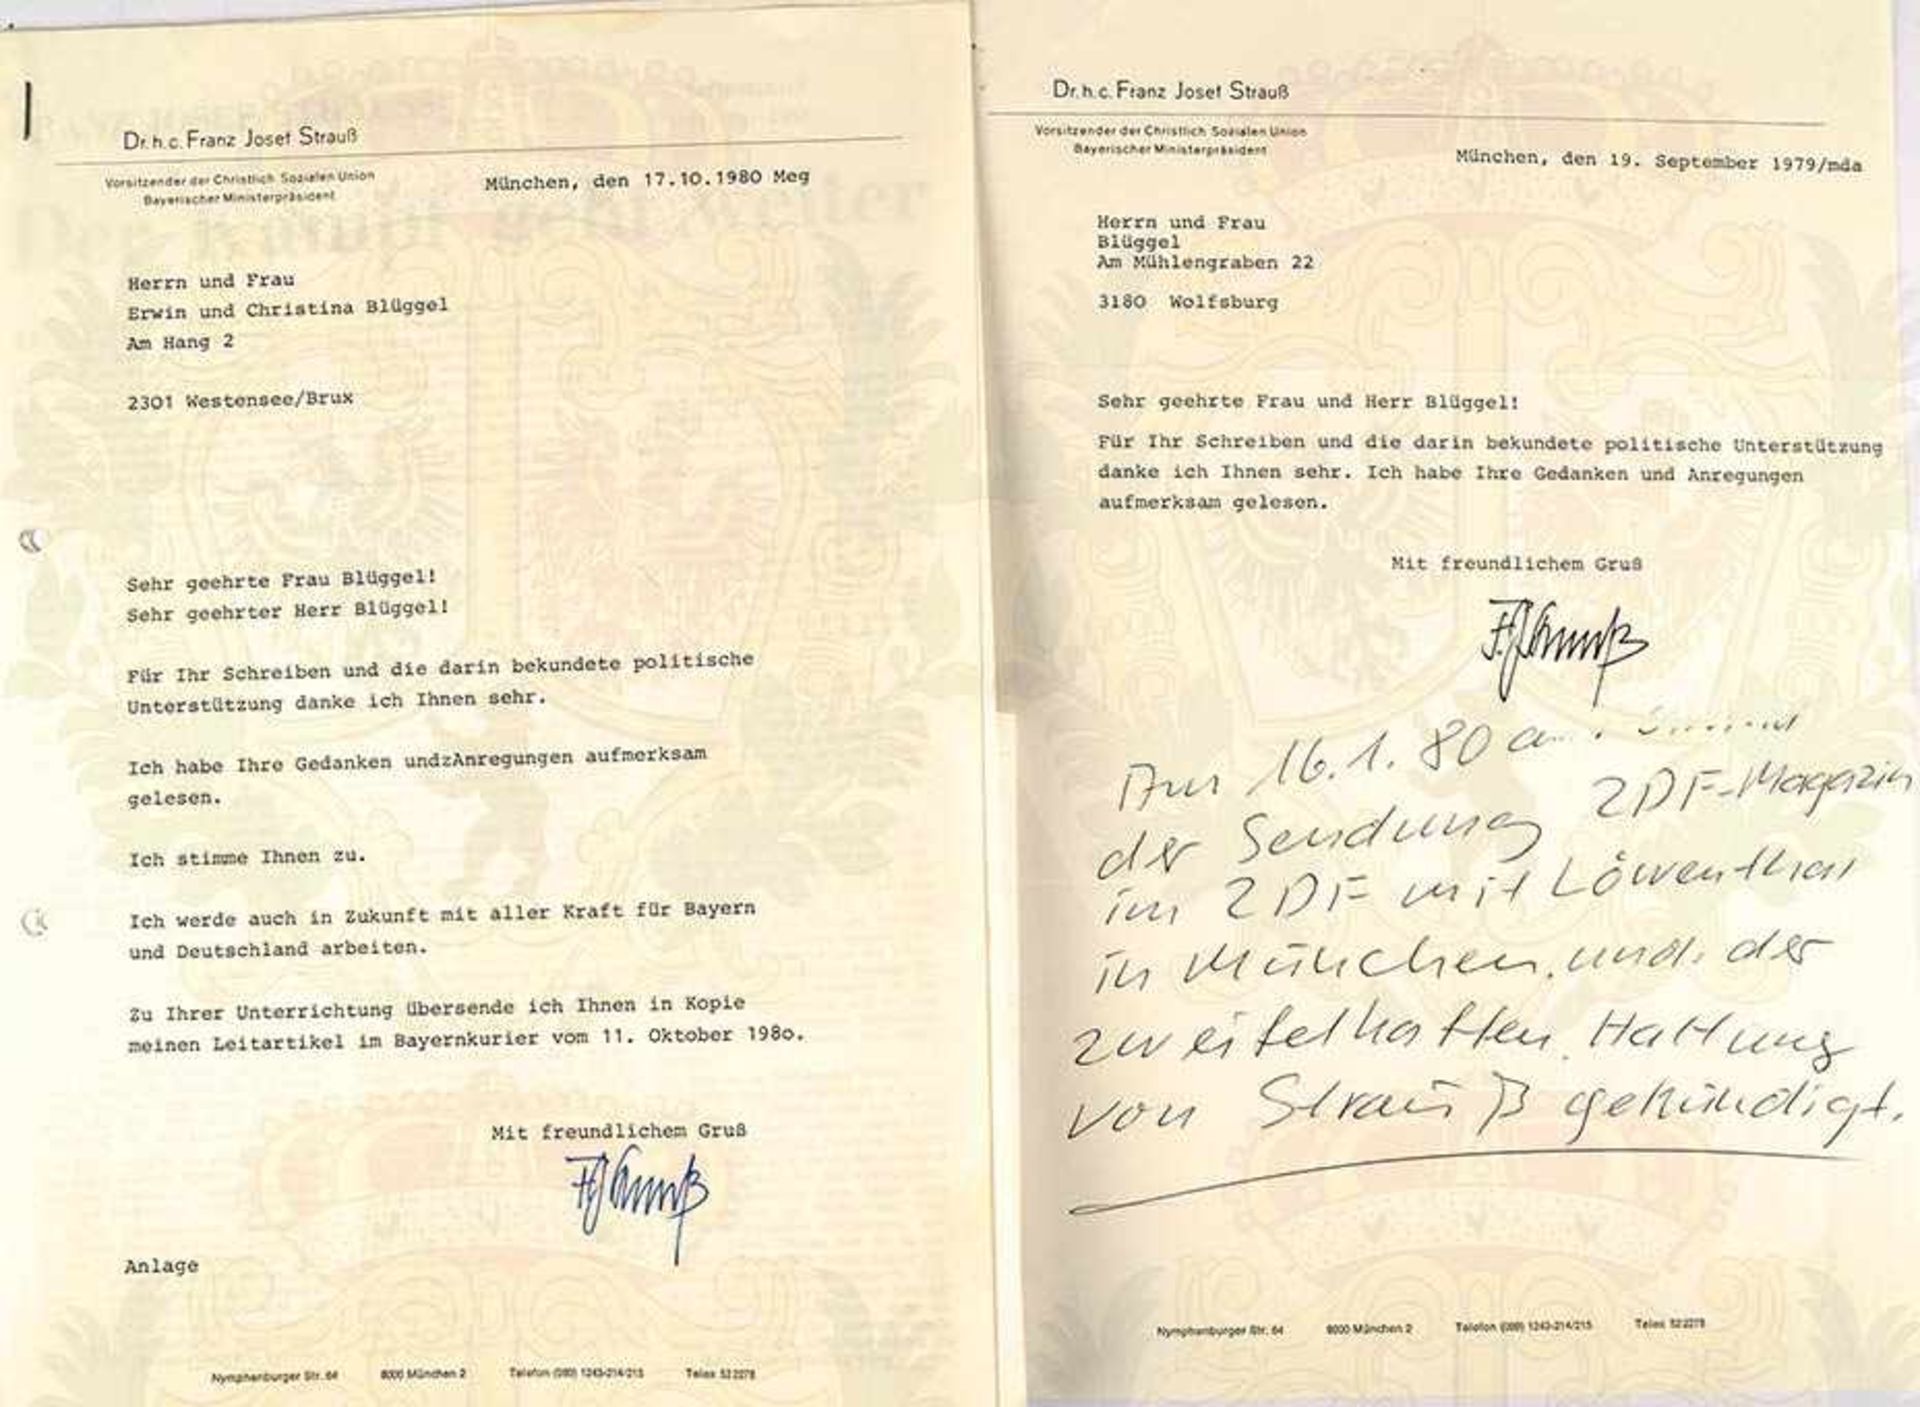 Dr. h. c. Franz Josef Strauß
Vorsitzender der Christlich Sozialen Union
Bayerischer Ministerpräsident
München, den 17.10.1980 Meg
Herrn und Frau
Erwin und Christina Blüggel
Am Hang 2
2301 Westensee/Brux
Sehr geehrte Frau Blüggel!
Sehr geehrter Herr Blüggel!
Für Ihr Schreiben und die darin bekundete politische
Unterstützung danke ich Ihnen sehr.
Ich habe Ihre Gedanken undzAnregungen aufmerksam
gelesen.
Ich stimme Ihnen zu.
Ich werde auch in Zukunft mit aller Kraft für Bayern
und Deutschland arbeiten.
Zu Ihrer Unterrichtung übersende ich Ihnen in Kopie
meinen Leitartikel im Bayernkurier vom 11. Oktober 198o.
Mit freundlichem Gruß
FJStrauß
Anlage
Nymphenburger Str. 64 8000 München 2 Telefon (089) 1243-214/215 Telex 522278
Dr. h. c. Franz Josef Strauß
Vorsitzender der Christlich Sozialen Union
Bayerischer Ministerpräsident
München, den 19. September 1979/mda
Herrn und Frau
Blüggel
Am Mühlengraben 22
3180 Wolfsburg
Sehr geehrte Frau und Herr Blüggel!
Für Ihr Schreiben und die darin bekundete politische Unterstützung
danke ich Ihnen sehr. Ich habe Ihre Gedanken und Anregungen
aufmerksam gelesen.
Mit freundlichem Gruß
F.J.Strauß
Am 16.1.80
der Sendung ZDF-Magazin
im ZDF mit Löwenthal
in München und der
zweifelhaften Haltung
von Strauß gekündigt.
Nymphenburger Str. 64 8000 München 2 Telefon (089) 1243-214/215 Telex 522278